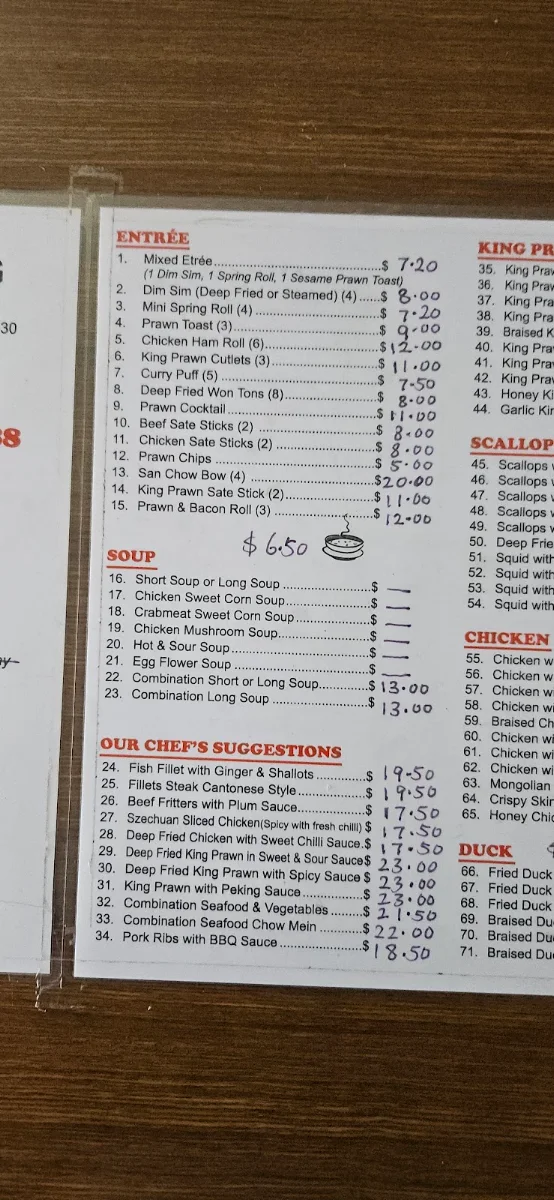 G
30
38
ay
ENTRÉE
1. Mixed Etrée..........$ 7.20
(1 Dim Sim, 1 Spring Roll, 1 Sesame Prawn Toast)
2. Dim Sim (Deep Fried or Steamed) (4)......$ 8.00
3. Mini Spring Roll (4) ..........$ 7.20
4. Prawn Toast (3)..........$ 9.00
5. Chicken Ham Roll (6)..........$ 12.00
6. King Prawn Cutlets (3)..........$ 11.00
7. Curry Puff (5) ..........$ 7.50
8. Deep Fried Won Tons (8)..........$ 8.00
9. Prawn Cocktail ..........$ 11.00
10. Beef Sate Sticks (2) ..........$ 8.00
11. Chicken Sate Sticks (2) ..........$ 8.00
12. Prawn Chips ..........$ 5.00
13. San Chow Bow (4) ..........$ 20.00
14. King Prawn Sate Stick (2)..........$ 11.00
15. Prawn & Bacon Roll (3) ..........$ 12.00
$6.50
SOUP
16. Short Soup or Long Soup ..........$ —
17. Chicken Sweet Corn Soup..........$ —
18. Crabmeat Sweet Corn Soup..........$ —
19. Chicken Mushroom Soup..........$ —
20. Hot & Sour Soup..........$ —
21. Egg Flower Soup ..........$ —
22. Combination Short or Long Soup..........$ 13.00
23. Combination Long Soup ..........$ 13.00
OUR CHEF'S SUGGESTIONS
24. Fish Fillet with Ginger & Shallots ..........$ 19.50
25. Fillets Steak Cantonese Style..........$ 19.50
26. Beef Fritters with Plum Sauce..........$ 17.50
27. Szechuan Sliced Chicken(Spicy with fresh chilli) $ 17.50
28. Deep Fried Chicken with Sweet Chilli Sauce.$ 17.50
29. Deep Fried King Prawn in Sweet & Sour Sauce$ 23.00
30. Deep Fried King Prawn with Spicy Sauce $ 23.00
31. King Prawn with Peking Sauce..........$ 23.00
32. Combination Seafood & Vegetables ........$ 21.50
33. Combination Seafood Chow Mein ..........$ 22.00
34. Pork Ribs with BBQ Sauce ..........$ 18.50
KING PR
35. King Praw
36. King Praw
37. King Pra
38. King Pra
39. Braised K
40. King Pra
41. King Prav
42. King Prav
43. Honey Ki
44. Garlic Kin
SCALLOP
45. Scallops
46. Scallops
47. Scallops
48. Scallops
49. Scallops
50. Deep Frie
51. Squid with
52. Squid with
53. Squid with
54. Squid with
CHICKEN
55. Chicken w
56. Chicken w
57. Chicken wi
58. Chicken wi
59. Braised Ch
60. Chicken wi
61. Chicken wi
62. Chicken wi
63. Mongolian
64. Crispy Skin
65. Honey Chic
DUCK
66. Fried Duck
67. Fried Duck
68. Fried Duck
69. Braised Du
70. Braised Du
71. Braised Du